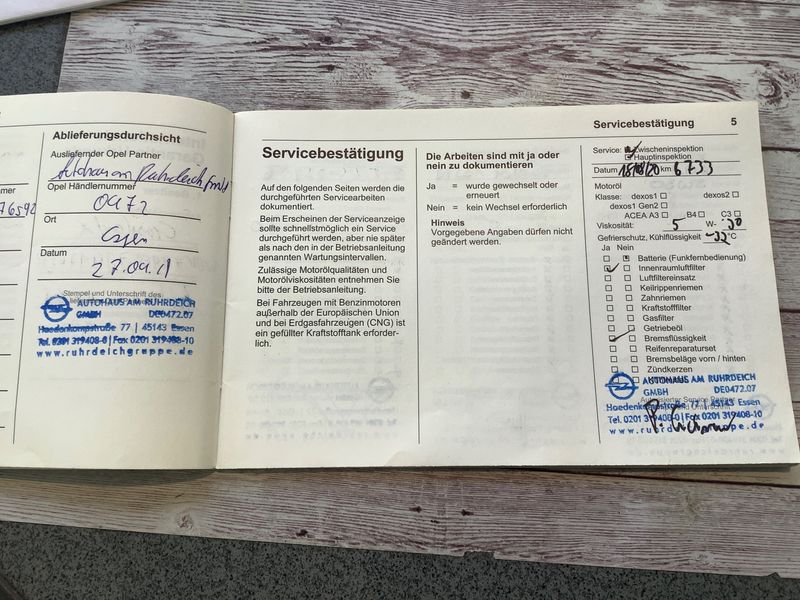 Ablieferungsdurchsicht
Ausliefernder Opel Partner
Autohaus am Ruhrdeich GmbH
Opel Händlernummer
0472
Ort
Essen
Datum
Stempel und Unterschrift des
AUTOHAUS AM RUHRDEICH
GMBH DE0472.07
Haedenkampstraße 77 | 45143 Essen
Tel. 0201 319408-0 | Fax 0201 319408-10
www.ruhrdeichgruppe.de
Servicebestätigung
Auf den folgenden Seiten werden die
durchgeführten Servicearbeiten
dokumentiert.
Beim Erscheinen der Serviceanzeige
sollte schnellstmöglich ein Service
durchgeführt werden, aber nie später
als nach den in der Betriebsanleitung
genannten Wartungsintervallen.
Zulässige Motorölqualitäten und
Motorölviskositäten entnehmen Sie
bitte der Betriebsanleitung.
Bei Fahrzeugen mit Benzinmotoren
außerhalb der Europäischen Union
und bei Erdgasfahrzeugen (CNG) ist
ein gefüllter Kraftstofftank erforder-
lich.
Die Arbeiten sind mit ja oder
nein zu dokumentieren
Ja = wurde gewechselt oder
erneuert
Nein = kein Wechsel erforderlich
Hinweis
Vorgegebene Angaben dürfen nicht
geändert werden.
Servicebestätigung 5
Service: Zwischeninspektion
Hauptinspektion
Datum km 6733
Motoröl
Klasse: dexos1 dexos2
dexos1 Gen2
ACEA A3 B4 C3
Viskosität: 5 W- 30
Gefrierschutz, Kühlflüssigkeit °C
Ja Nein
Batterie (Funkfernbedienung)
Innenraumluftfilter
Luftfiltereinsatz
Keilrippenriemen
Zahnriemen
Kraftstofffilter
Gasfilter
Getriebeöl
Bremsflüssigkeit
Reifenreparaturset
Bremsbeläge vorn / hinten
Zündkerzen
AUTOHAUS AM RUHRDEICH
GMBH DE0472.07
Haedenkampstraße 77 | 45143 Essen
Tel. 0201 319408-0 | Fax 0201 319408-10
www.ruhrdeichgruppe.de